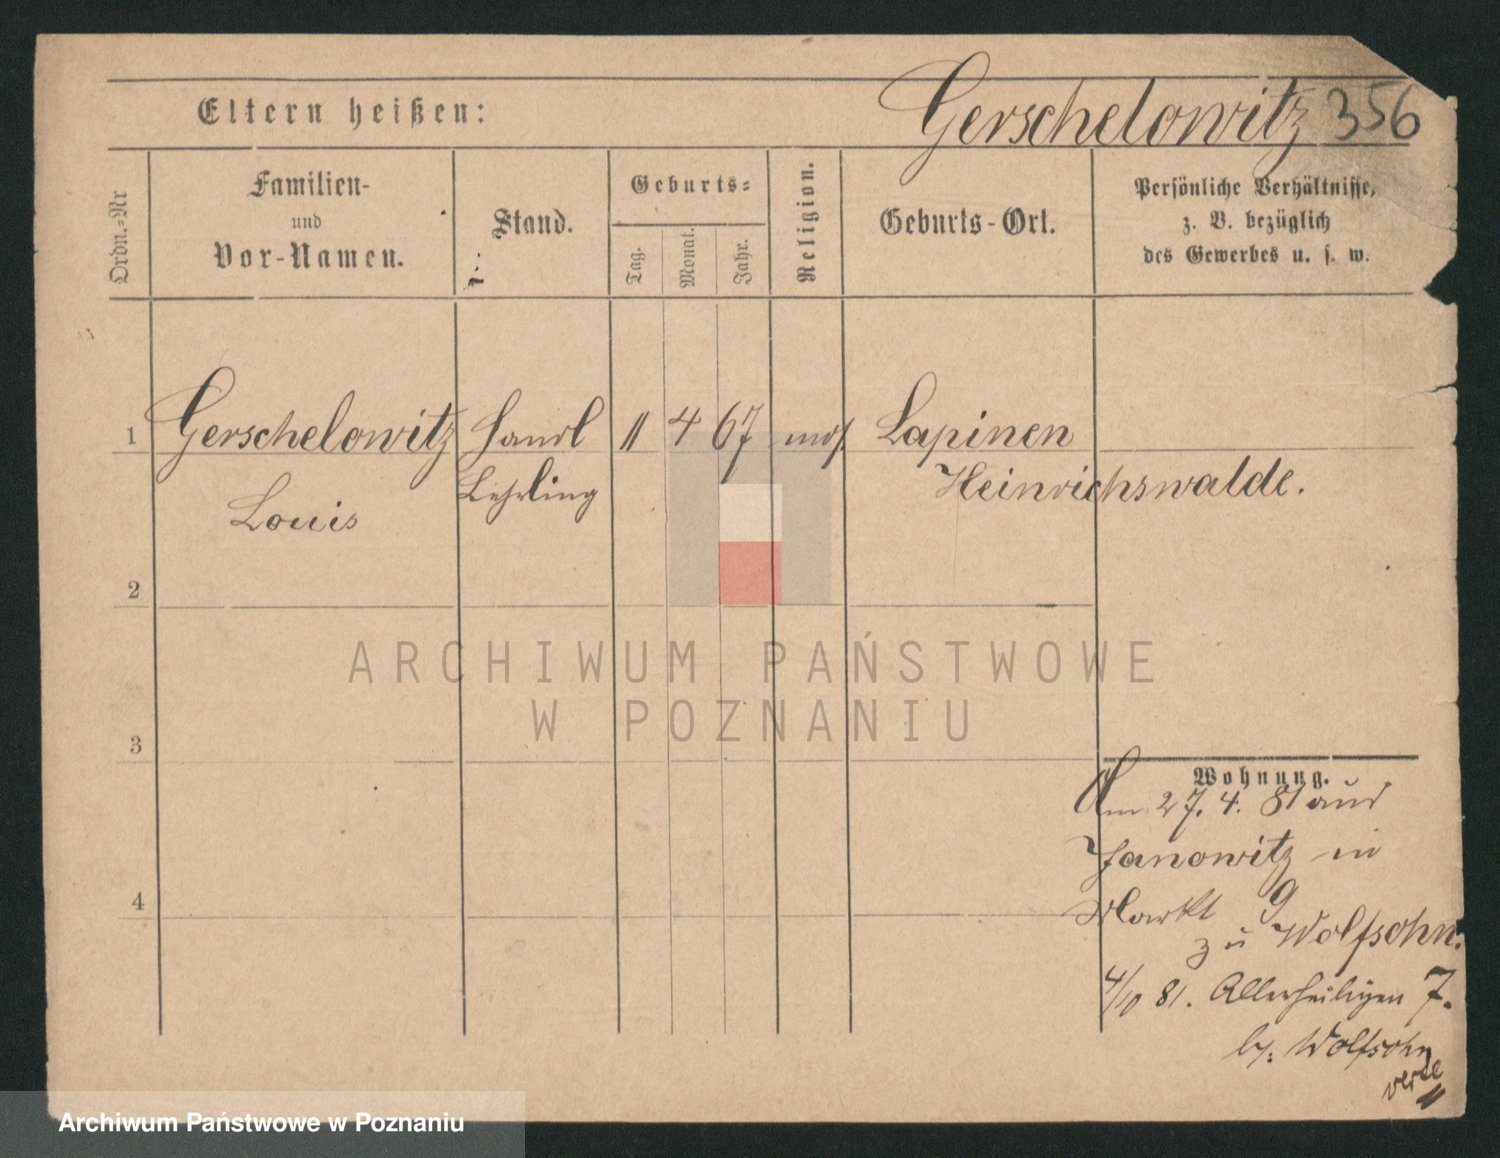 Eltern heißen:
Gerschelowitz 356
Ordn.-Nr
Familien-
und
Vor-Namen.
Stand.
Geburts-
Tag.
Monat.
Jahr.
Religion.
Geburts-Ort.
Persönliche Verhältnisse,
z. B. bezüglich
des Gewerbes u. s. w.
1 Gerschelowitz Handl 11 4 67 mos. Lapinen
Lehrling Heinrichswalde.
Louis
2
ARCHIWUM PAŃSTWOWE
W POZNANIU
3
Wohnung.
Am 27. 4. 81 aus
Janowitz in
4
Markt 9
zu Wolfsohn.
4/10 81. Allerheiligen 7.
b. Wolfsohn
Archiwum Państwowe w Poznaniu